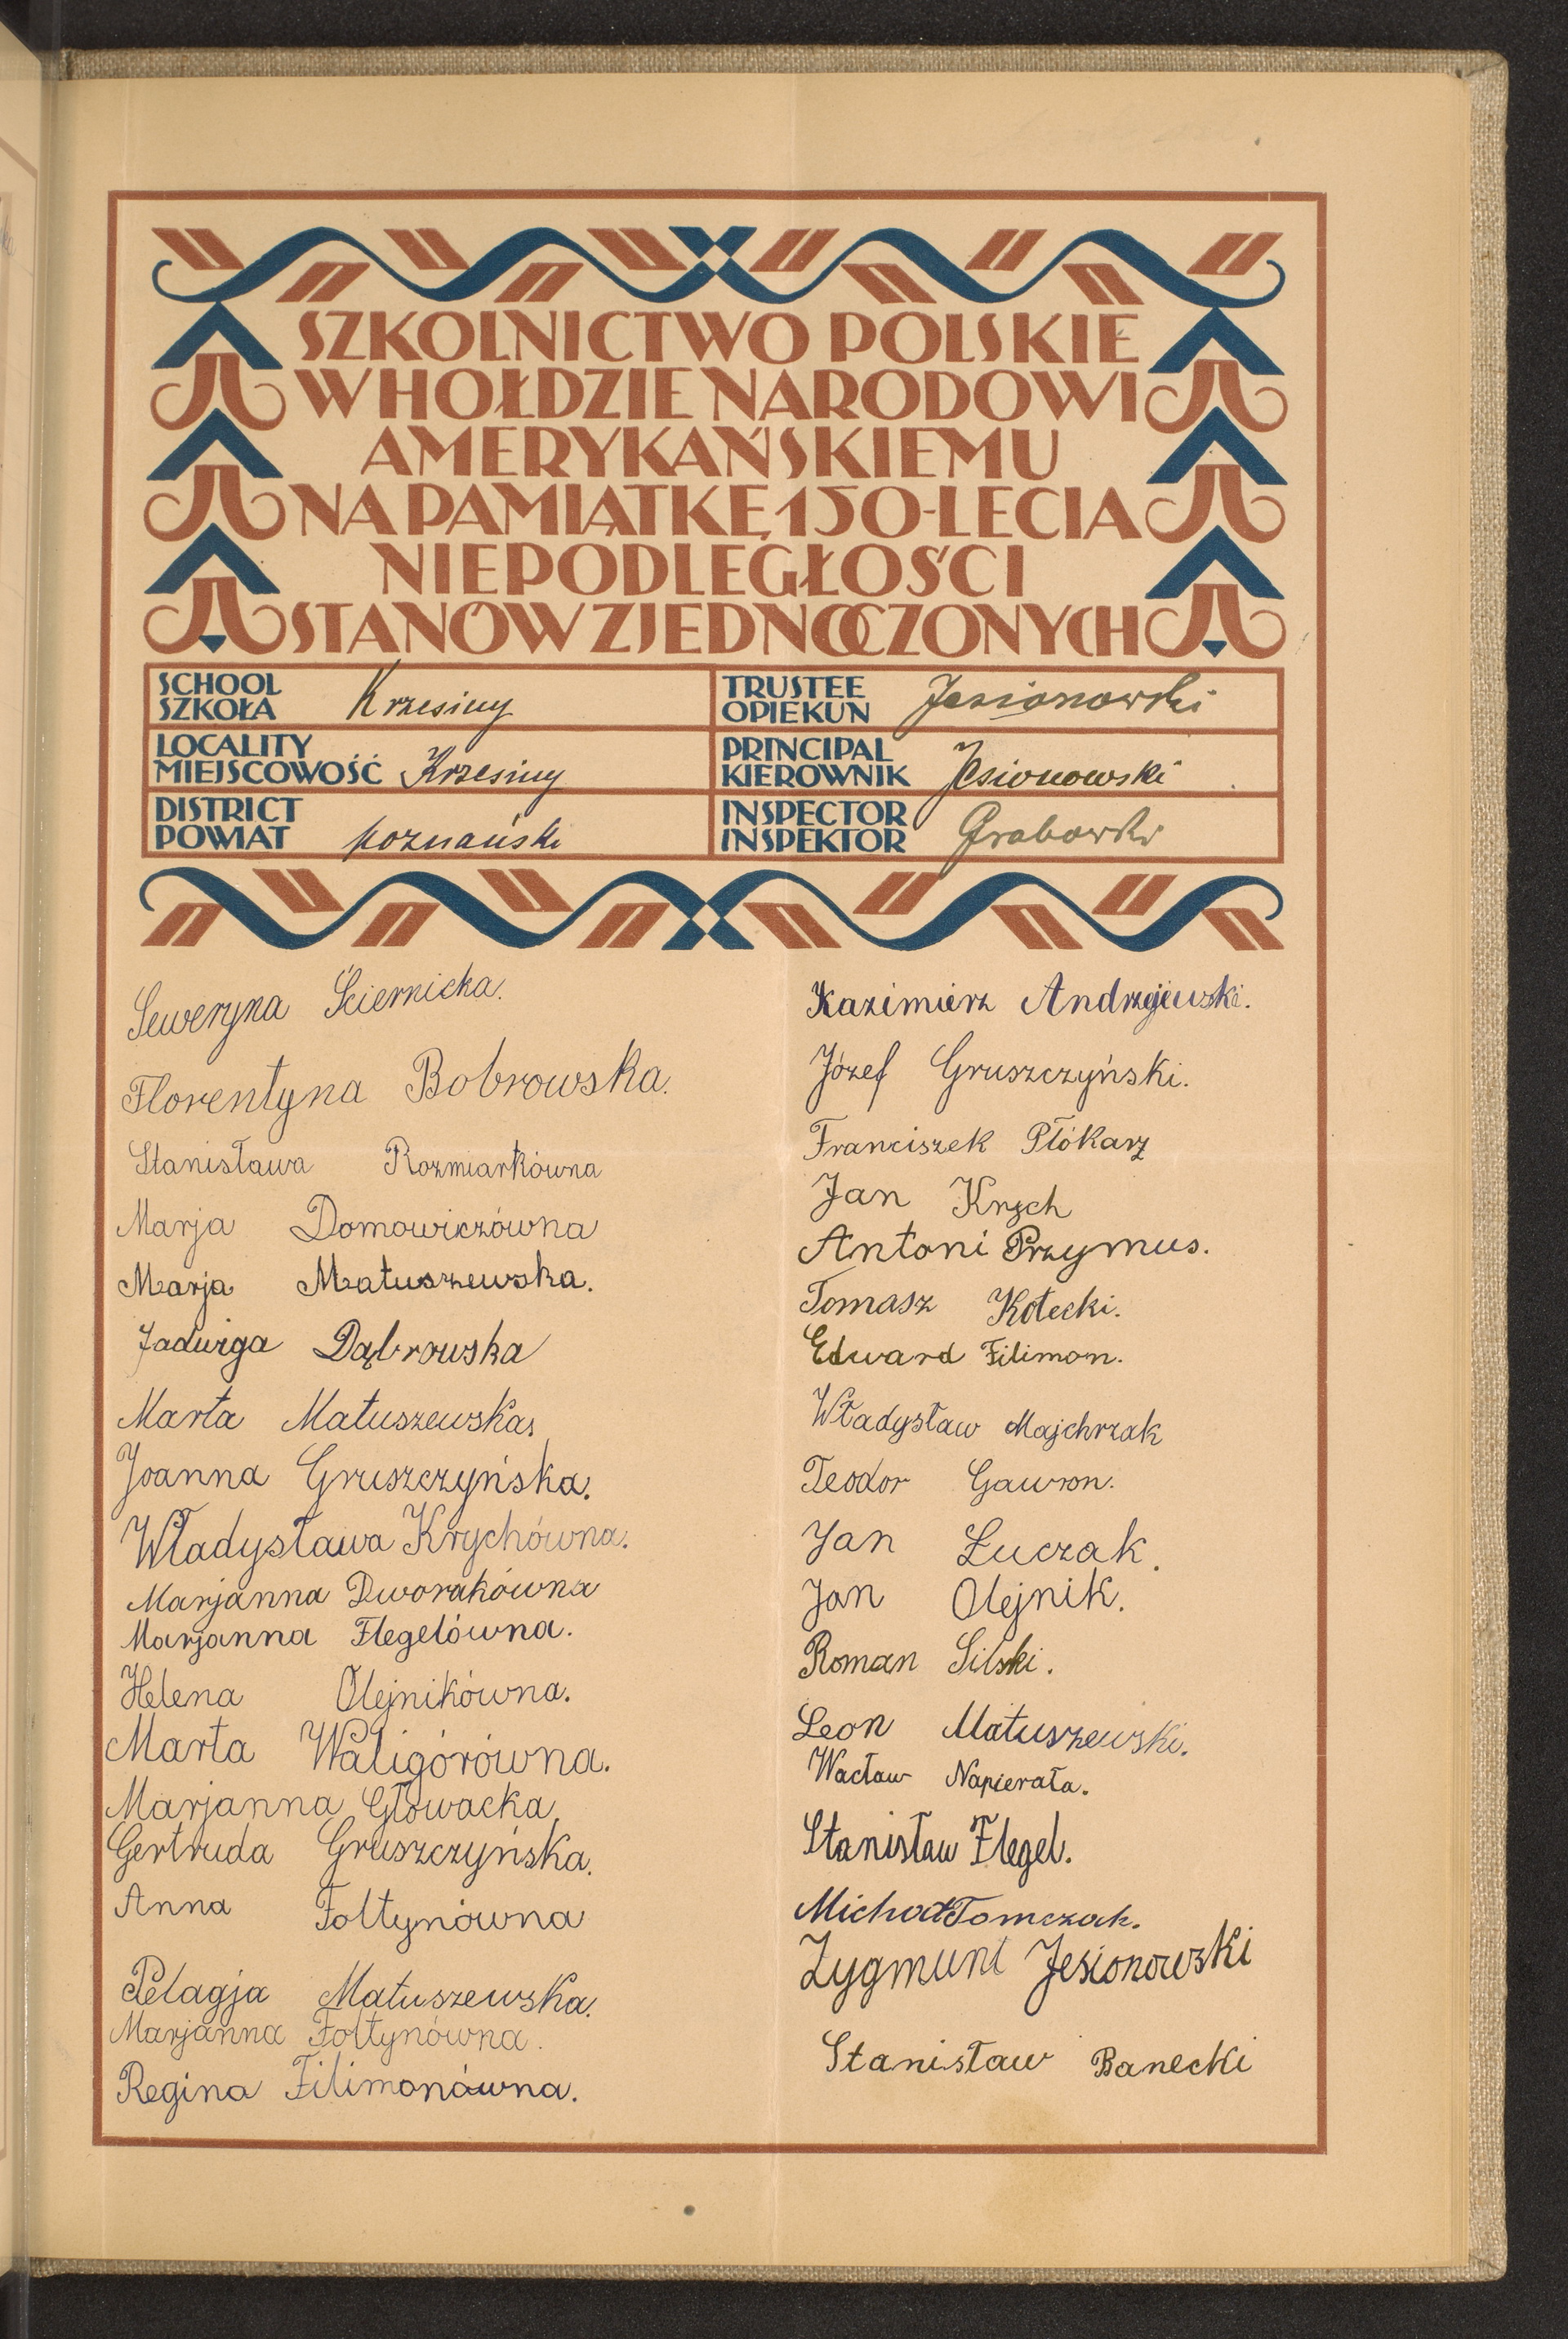 SZKOLNICTWO POLSKIE
W HOŁDZIE NARODOWI
AMERYKAŃSKIEMU
NA PAMIĄTKĘ 150-LECIA
NIEPODLEGŁOŚCI
STANÓW ZJEDNOCZONYCH
SCHOOL
SZKOŁA Krzesiny
TRUSTEE
OPIEKUN Jesionowski
LOCALITY
MIEJSCOWOŚĆ Krzesiny
PRINCIPAL
KIEROWNIK Jesionowski
DISTRICT
POWIAT poznański
INSPECTOR
INSPEKTOR Grabowski
Seweryna Ściernicka.
Florentyna Bobrowska.
Stanisława Rozmiarkówna
Marja Domowiczówna
Marja Matuszewska.
Jadwiga Dąbrowska
Marta Matuszewska,
Joanna Gruszczyńska.
Władysława Krychówna.
Marjanna Dworakówna
Marjanna Flegelówna.
Helena Olejnikówna.
Marta Waligórówna.
Marjanna Głowacka,
Gertruda Gruszczyńska.
Anna Foltynówna
Pelagja Matuszewska.
Marjanna Foltynówna.
Regina Filimonówna.
Kazimierz Andrzejewski.
Józef Gruszczyński.
Franciszek Płókarz
Jan Krych
Antoni Przymus.
Tomasz Kotecki.
Edward Filimon.
Władysław Majchrzak
Teodor Gawron.
Jan Łuczak.
Jan Olejnik.
Roman Silski.
Leon Matuszewski.
Wacław Napierała.
Stanisław Flegel.
Michał Tomczak.
Zygmunt Jesionowski
Stanisław Banecki